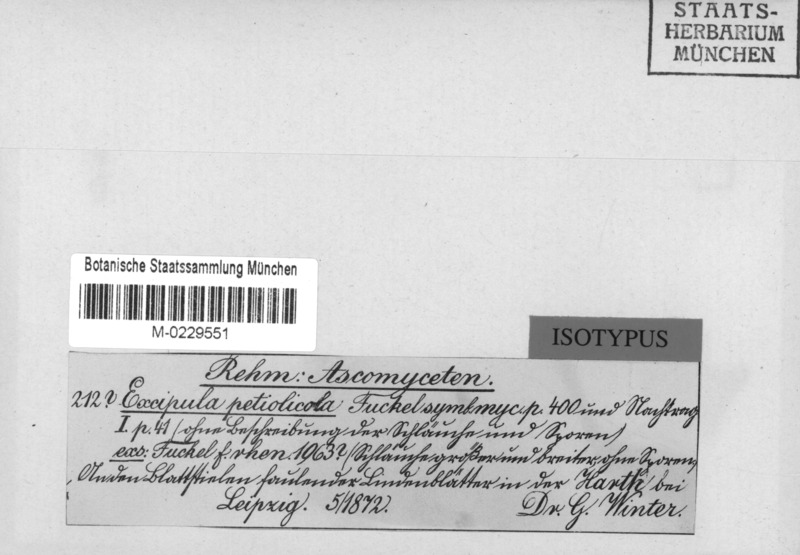 STAATS-
HERBARIUM
MÜNCHEN
Botanische Staatssammlung München
M-0229551
ISOTYPUS
Rehm: Ascomyceten.
212? Excipula petiolicola Fuckel symb. myc. p. 400 und Nachtrag
I p. 41 (ohne Beschreibung der Schläuche und Sporen)
exs: Fuckel f. rhen. 1963? (Schläuche größer und breiter, ohne Sporen)
An den Blattstielen faulender Lindenblätter in der Harth bei
Leipzig. 5/1872. Dr. G. Winter.